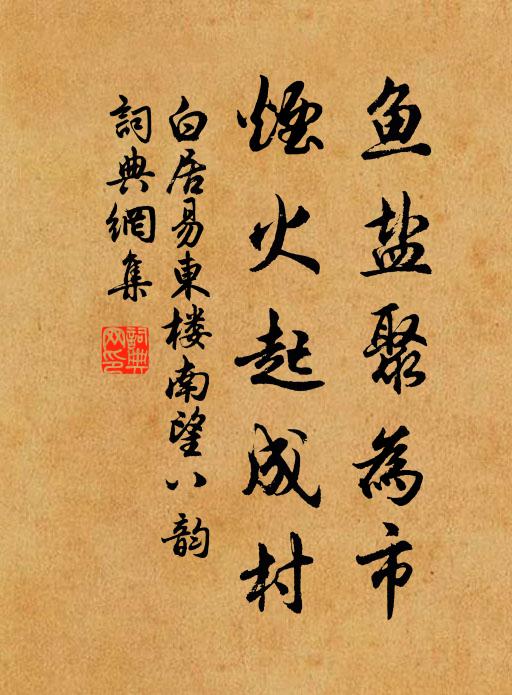 鱼盐聚為市
煙火起成村
白居易東楼南望八韵
詞典網集
詞典
网印